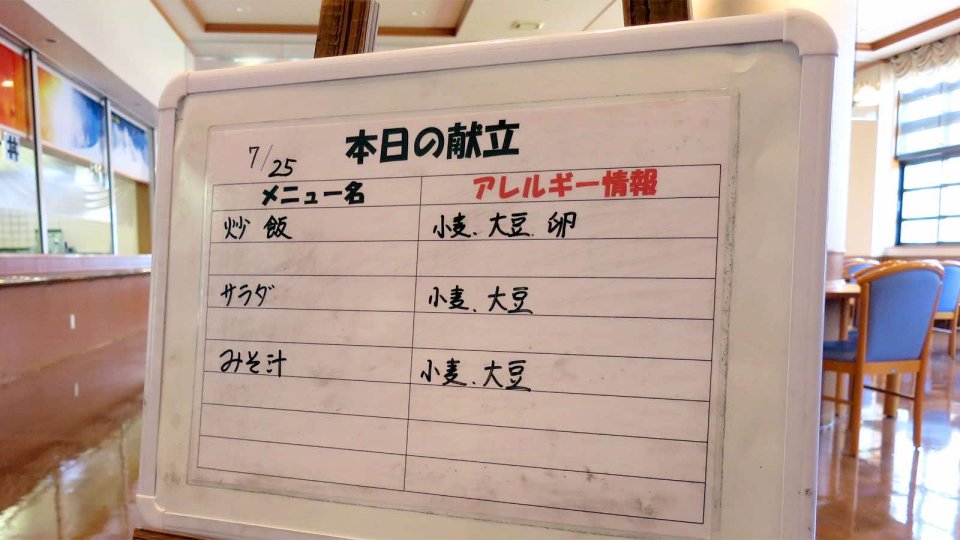 本日の献立
7/25
メニュー名 アレルギー情報
炒飯 小麦、大豆、卵
サラダ 小麦、大豆
みそ汁 小麦、大豆
丼